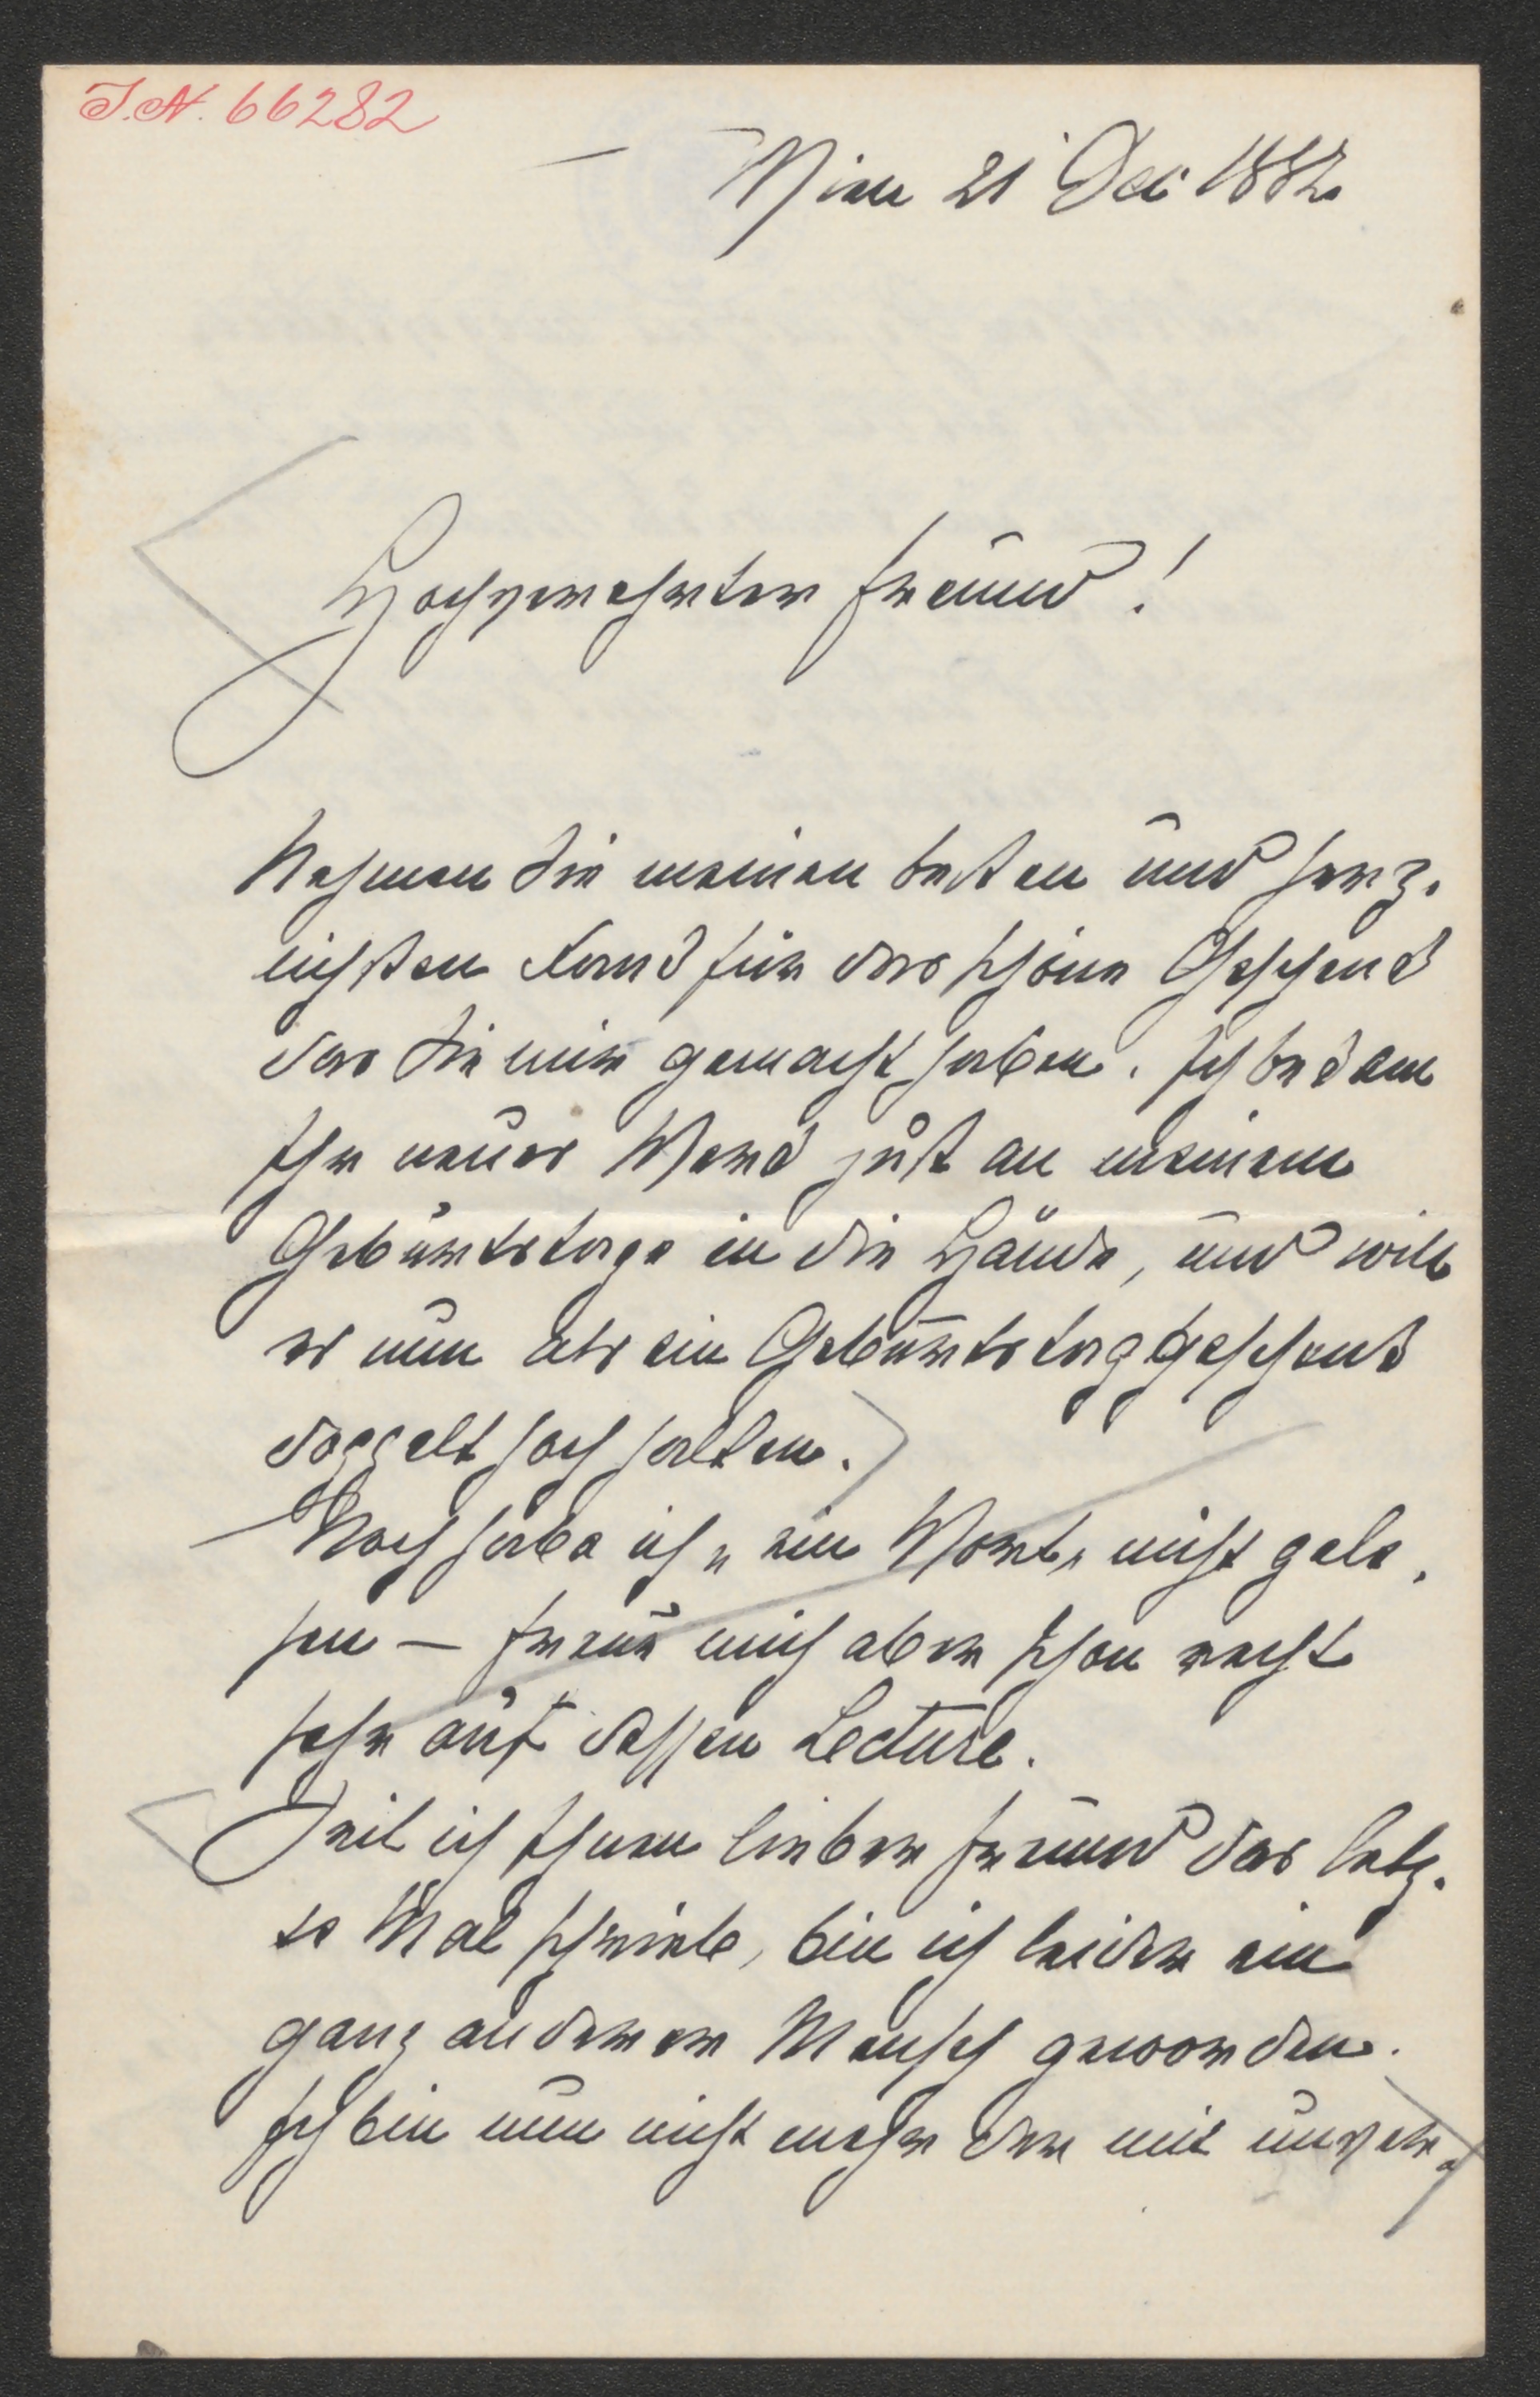 J.N. 66282
Wien 21 Dec 1882
Hochverehrter Freund!
Nehmen Sie meinen besten und herz-
lichsten Dank für das schöne Geschenk
das Sie mir gemacht haben. Ich bekam
Ihr neues Werk just an meinem
Geburtstage in die Hände, und will
es nun als ein Geburtstaggeschenk
doppelt hoch halten.
Noch habe ich „ein Wort" nicht gele-
sen — freue mich aber schon recht
sehr auf dessen Lecture.
Seit ich Ihnen lieber Freund das letz-
te Mal schrieb, bin ich leider ein
ganz anderer Mensch geworden.
Ich bin nun nicht mehr der mit unver-